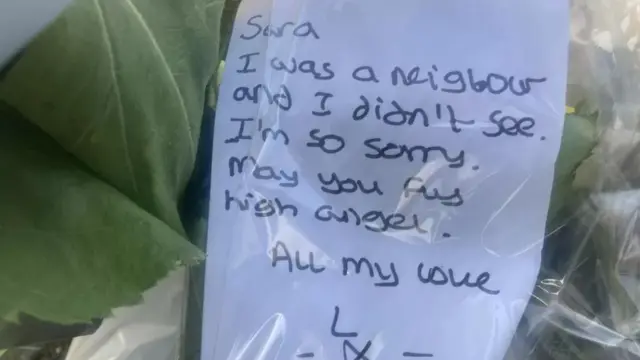 Sara
I was a neigbour
and I didn't see.
I'm so sorry.
May you fly
high angel.
All my love
L
- X -